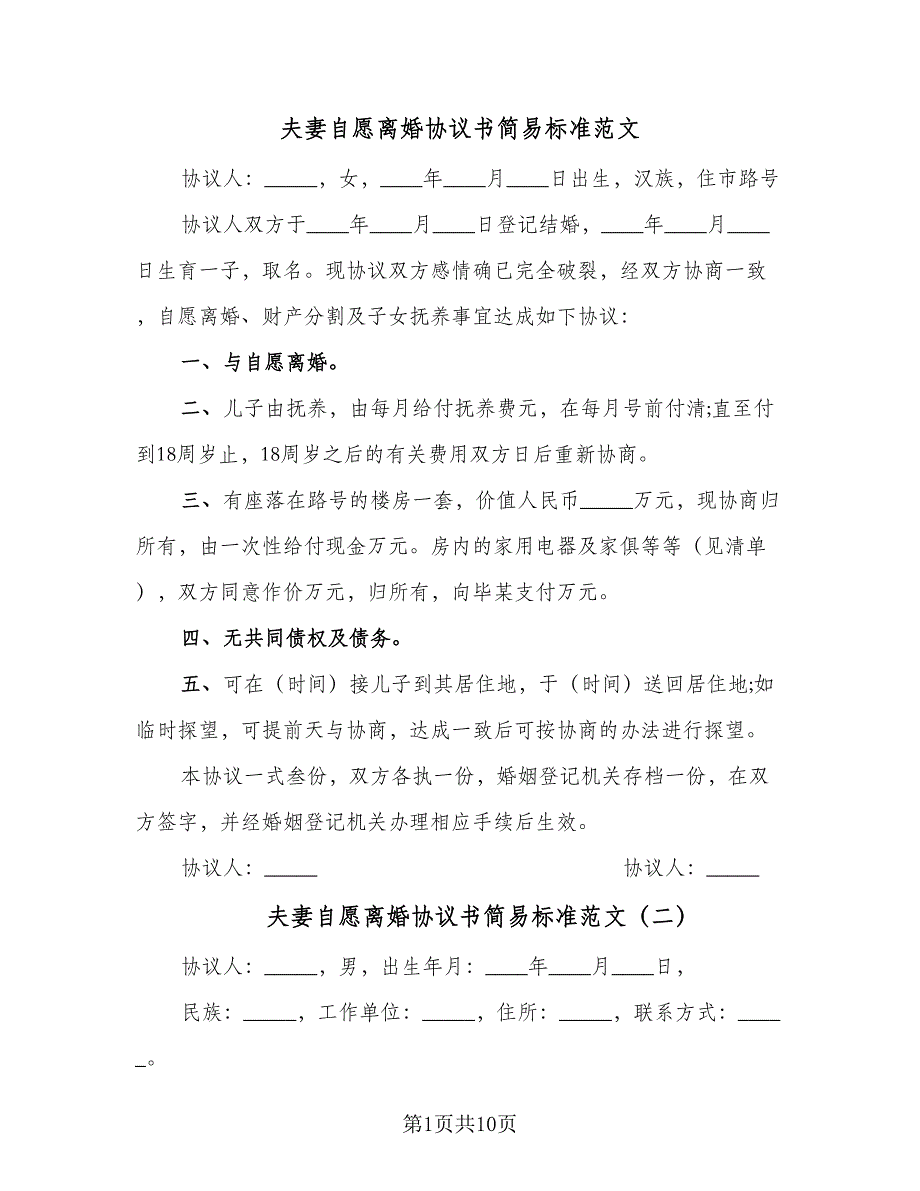 夫妻自愿离婚协议书简易标准范文
协议人：_____，女，____年____月____日出生，汉族，住市路号
协议人双方于____年____月____日登记结婚，____年____月____
日生育一子，取名。现协议双方感情确已完全破裂，经双方协商一致
，自愿离婚、财产分割及子女抚养事宜达成如下协议：
一、与自愿离婚。
二、儿子由抚养，由每月给付抚养费元，在每月号前付清;直至付
到18周岁止，18周岁之后的有关费用双方日后重新协商。
三、有座落在路号的楼房一套，价值人民币_____万元，现协商归
所有，由一次性给付现金万元。房内的家用电器及家俱等等（见清单
），双方同意作价万元，归所有，向毕某支付万元。
四、无共同债权及债务。
五、可在（时间）接儿子到其居住地，于（时间）送回居住地;如
临时探望，可提前天与协商，达成一致后可按协商的办法进行探望。
本协议一式叁份，双方各执一份，婚姻登记机关存档一份，在双
方签字，并经婚姻登记机关办理相应手续后生效。
协议人：_____ 协议人：_____
夫妻自愿离婚协议书简易标准范文（二）
协议人：_____，男，出生年月：____年____月____日，
民族：_____，工作单位：_____，住所：_____，联系方式：____
_。
第1页共10页